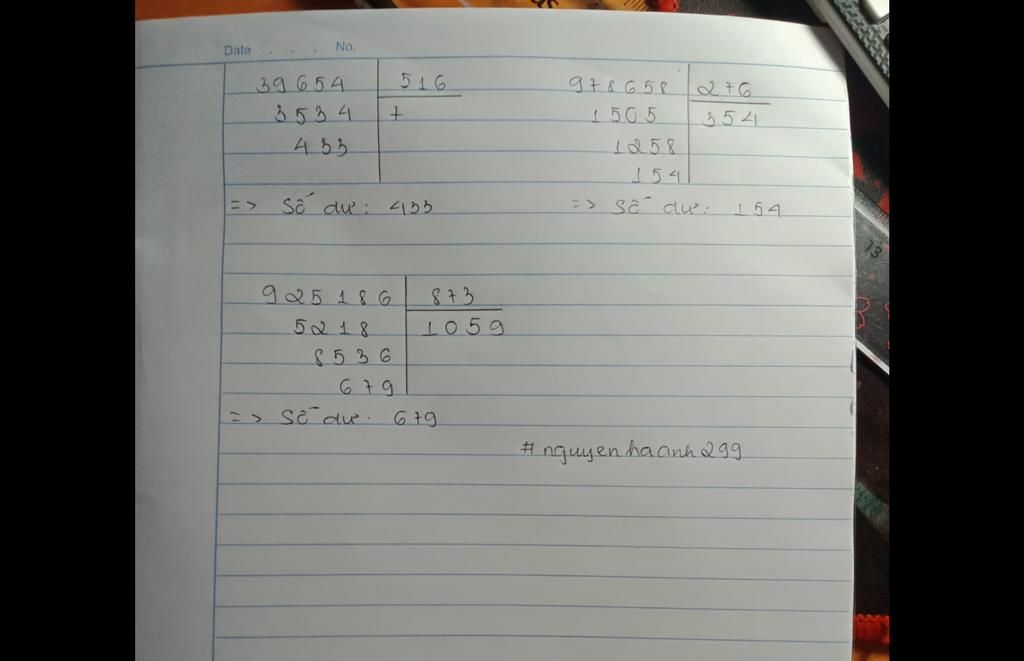 Date . . . No.
39654 516
3534 7
433
=> Số dư: 433
978658 276
1505 354
1258
154
=> Số dư: 154
925186 873
5218 1059
8536
679
=> Số dư: 679
#nguyenhaanh299
13